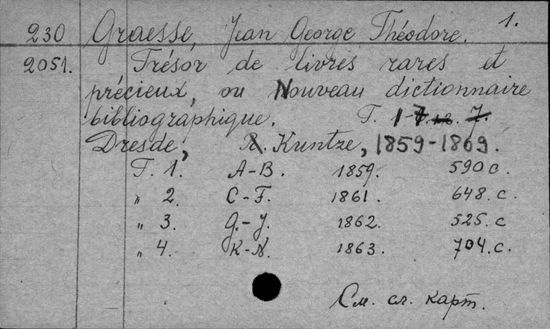 1.
230 Graesse, Jean George Théodore.
2051. Trésor de livres rares et
précieux, ou Nouveau dictionnaire
bibliographique. T. 1-7
Dresde, R. Kuntze, 1859-1869.
T. 1. A-B. 1859. 590 c.
„ 2. C-F. 1861. 648. c.
„ 3. G.-J. 1862. 525. c.
„ 4. K-N. 1863. 704. c.
См. сл. карт.